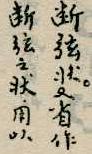 断弦狀。又省作
断弦之狀用以